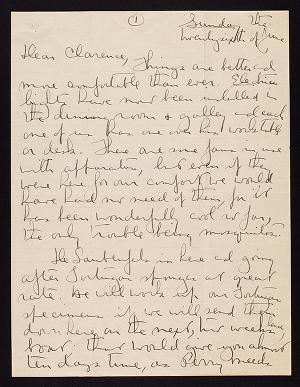 1
Sunday the
twentysixth of June.
Dear Clarence, Things are better and
more comfortable than ever. Electric
lights have now been installed in
the dining room & galley and each
one of us has one over his work table
or desk. There are some fans in use
with apparatus, but even if they
were here for our comfort we would
have had no need of them, for it
has been wonderfully cool so far,
the only trouble being mosquitos.
De Laubenfels is here and going
after Tortugas sponges at great
rate. He will work up our Tortugas
specimens if we will send them
down here on the next, two weeks hence,
boat. That would give you almost
ten days time, as Perry needs